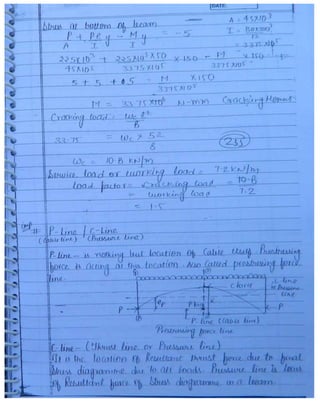 DATE:
Stress at bottom of beam
A = 45X10³
P/A + P.e/I y - M/I y = -5
I = 150X300³/12
= 3375X10⁵
225X10³/45X10³ + 225X10³X50/3375X10⁵ X 150 - M/3375X10⁵ X 150
5 + 5 + 5 = M/3375X10⁵ X150
M = 33.75X10⁶ N-mm Cracking Moment
Cracking load =) Wc l²/8
33.75 = Wc X 5²/8
(255)
Wc = 10.8 KN/m
Service load or working load = 7.2 KN/m
load factor = Cracking load/working load = 10.8/7.2
= 1.5
Imp
# P-line / C-line
(Cable line) (Pressure line)
P. line - is nothing but location of Cable itself. Prestressing
force is acting at this location. Also called prestressing force
line.
C line
C. line
or Pressure
line
P
ep
P
P. line (Cable line)
Prestressing force line
C line - (Thrust line or Pressure line)
It is the location of Resultant thrust force due to final
stress diagramme due to all loads. Pressure line is locus
of Resultant force of stress diagramme in a beam.